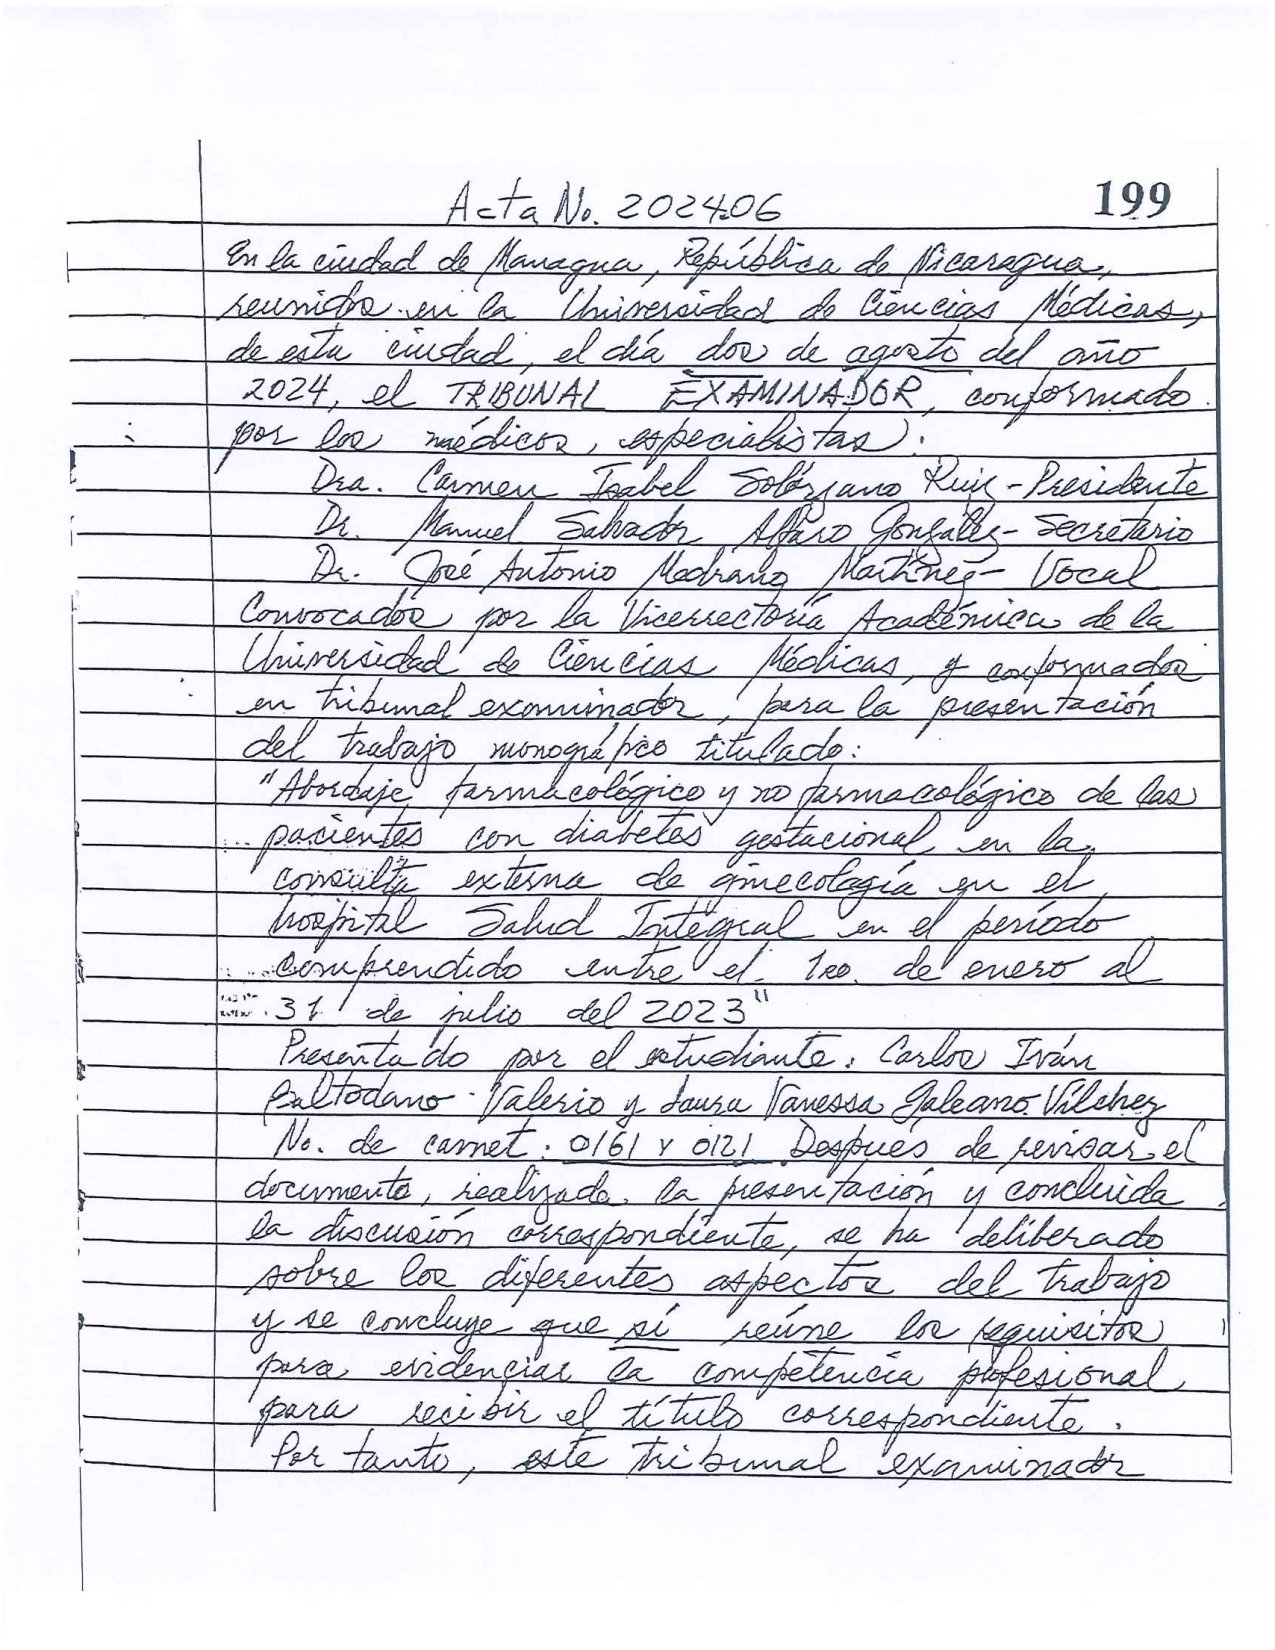 Acta No. 202406
199
En la ciudad de Managua, República de Nicaragua,
reunidos en la Universidad de Ciencias Médicas,
de esta ciudad, el día dos de agosto del año
2024, el TRIBUNAL EXAMINADOR, conformado
por los médicos, especialistas:
Dra. Carmen Isabel Solórzano Ruiz - Presidente
Dr. Manuel Salvador Alfaro González - Secretario
Dr. José Antonio Medrano Martínez - Vocal
Convocados por la Vicerrectoría Académica de la
Universidad de Ciencias Médicas, y conformados
en tribunal examinador, para la presentación
del trabajo monográfico titulado:
"Abordaje farmacológico y no farmacológico de las
pacientes con diabetes gestacional en la
consulta externa de ginecología en el
hospital Salud Integral en el período
comprendido entre el 1ro. de enero al
31 de julio del 2023"
Presentado por el estudiante: Carlos Iván
Baltodano Valerio y Laura Vanessa Galeano Vílchez
No. de carnet: 0161 y 0121 Despues de revisar el
documento, realizada la presentación y concluida
la discusión correspondiente, se ha deliberado
sobre los diferentes aspectos del trabajo
y se concluye que sí reúne los requisitos
para evidenciar la competencia profesional
para recibir el título correspondiente.
Por tanto, este tribunal examinador